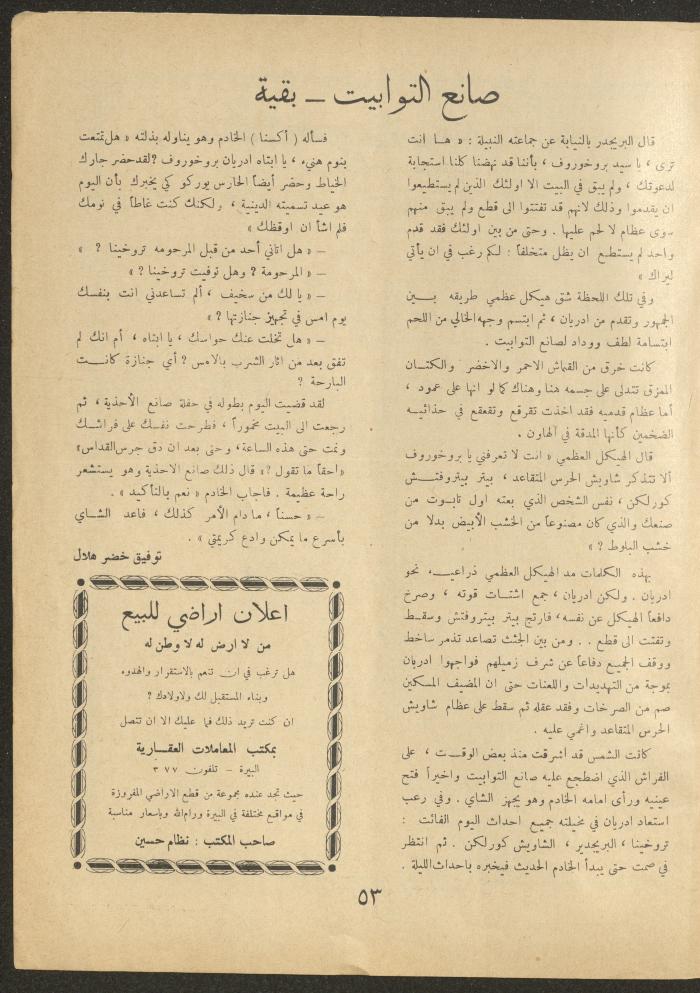 صانع التوابيت — بقية
قال البريجدر بالنيابة عن جماعته النبيلة : « هـا انت
ترى ، يا سيد بروخوروف ، بأننا قد نهضنا كلنا استجابة
لدعوتك ، ولم يبق في البيت الا اولئك الذين لم يستطيعوا
ان يقدموا وذلك لانهم قد تفتتوا الى قطع ولم يبق منهم
سوى عظام لا لحم عليها . وحتى من بين اولئك فقد قدم
واحد لم يستطـع ان يظل متخلفاً : لكم رغب في ان يأتي
ليراك »
وفي تلك اللحظة شق هيكل عظمي طريقه بـــين
الجمهور وتقدم من ادريان ، ثم ابتسم وجهه الخالي من اللحم
ابتسامة لطف ووداد لصانع التوابيت .
كانت خرق من القماش الاحمر والاخضر والكتـان
الممزق تتدلى على جسمه هنا وهناك كما لو انها على عمود ،
أما عظام قدميه فقد اخذت تقرقع وتقعقع في حذائيـه
الضخمين كأنها المدقة في الهاون .
قال الهيكل العظمي « انت لا تعرفني يا بروخوروف
ألا تتذكر شاويش الحرس المتقاعد ، بيتر بيتروفتــش
كورلكن ، نفس الشخص الذي بعته اول تابـوت من
صنعك والذي كان مصنوعاً من الخشب الأبيض بدلا من
خشب البلوط ؟ »
بهذه الكلمات مد الهيكل العظمي ذراعيــه نحو
ادريان . ولكن ادريان ، جمع اشتــات قوته ، وصرخ
دافعاً الهيكل عن نفسه ، فارتج بيتر بيتروفتش وسقـط
وتفتت الى قطع . . ومن بين الجثث تصاعد تذمر ساخط
ووقف الجميع دفاعاً عن شرف زميلهم فواجهوا ادريان
بموجة من التهديدات واللعنات حتى ان المضيف المسكين
صم من الصرخات وفقد عقله ثم سقط على عظام شاويش
الحرس المتقاعد واغمي عليه .
كانت الشمس قد أشرقت منذ بعض الوقــت ، على
الفراش الذي اضطجع عليه صانع التوابيت واخيراً فتح
عينيه ورأى امامه الخادم وهو يجهز الشاي . وفي رعب
استعاد ادريان في مخيلته جميـع احداث اليوم الفائت :
تروخينا ، البريجدير ، الشاويش كورلكن . ثم انتظر
في صمت حتى يبدأ الخادم الحديث فيخبره باحداث الليلة .
فسأله ( أكسنا ) الخادم وهو يناوله بذلته « هل تمتعت
بنوم هنيء ، يا ابتاه ادريان بروخوروف ؟ لقد حضر جارك
الخياط وحضر أيضاً الحارس يوركو كي يخبرك بأن اليوم
هو عيد تسميته الدينية ، ولكنك كنت غاطاً في نومك
فلم اشأ ان اوقظك »
– « هل اتاني أحد من قبل المرحومه تروخينا ؟ »
– « المرحومة ؟ وهل توفيت تروخينا ؟ »
– « يا لك من سخيف ، ألم تساعدني انت بنفسك
يوم امس في تجهيز جنازتها ؟ »
– « هل تخلت عنك حواسك ، يا ابتاه ، أم انك لم
تفق بعد من اثار الشرب بالامس ؟ أي جنازة كانــت
البارحة ؟
لقد قضيت اليوم بطوله في حفلة صانع الأحذية ، ثم
رجعت الى البيت مخموراً ، فطرحت نفسـك على فراشـك
ونمت حتى هذه الساعة ، وحتى بعد ان دق جرس القداس »
« احقاً ما تقول ؟ » قال ذلك صانع الاحذية وهو يستشعر
راحة عظيمة . فاجاب الخادم « نعم بالتأكيد » .
– « حسناً ، ما دام الأمر كذلك ، فاعد الشـاي
بأسرع ما يمكن وادع كريمتي » .
توفيق خضر هلال
اعلان اراضي للبيع
من لا ارض له لا وطن له
هل ترغب في ان تنعم بالاستقرار والهدوء
وبناء المستقبل لك ولاولادك ؟
ان كنت تريد ذلك فما عليك الا ان تتصل
بمكتب المعاملات العقـارية
البيرة – تلفون ٣٧٧
حيث تجد عنده مجموعة من قطع الاراضي المفروزة
في مواقع مختلفة في البيرة ورام الله وباسعار مناسبة
صاحب المكتب : نظام حسين
٥٣